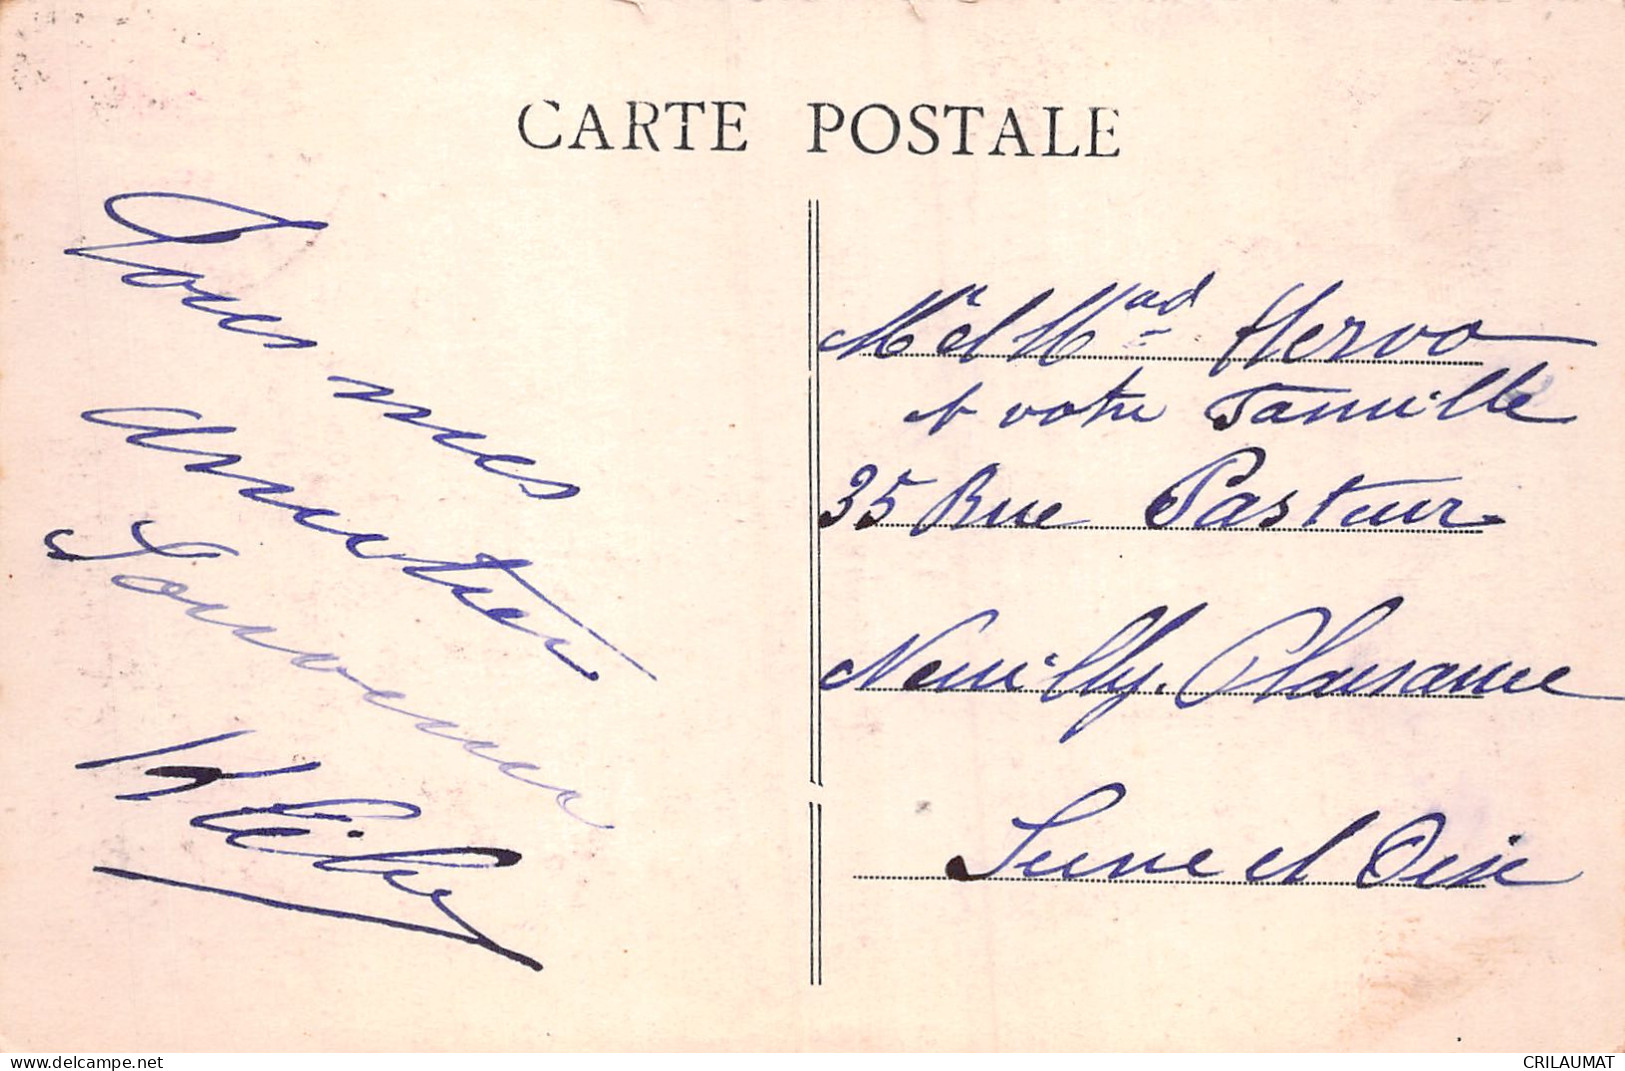 CARTE POSTALE
Tous mes
amitiés
Souvenir
Mr et Mad Hervo
et votre Famille
35 Rue Pasteur
Neuilly. Plaisance
Seine et Oise
delcampe.net
CRILAUMAT